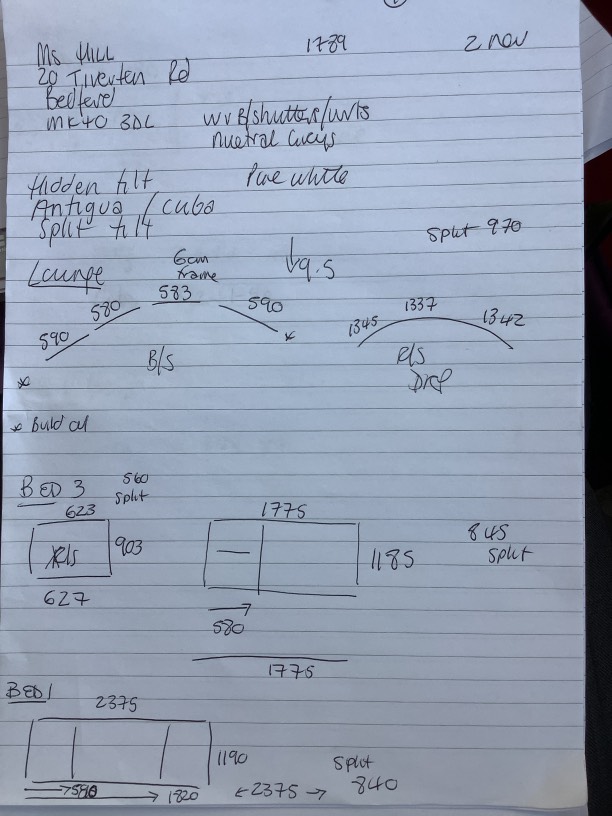 Ms HILL 1789 2 nov
20 Tiverten Rd
Bedford
MK40 3DL WVB/shutters/uvts
nuetral Greys
Hidden tilt Pure white
Antigua / Cuba
Split tilt
Split 970
Lounge 6cm frame ↓9.5
590 580 583 590 *
*
B/S
1345 1337 1342
R/S
Drop
* Build out
BED 3 560
Split
623
R/S 903
627
1775
1185
580
1775
845
Split
BED 1
2375
1190
580 1820
←2375→
Split
840